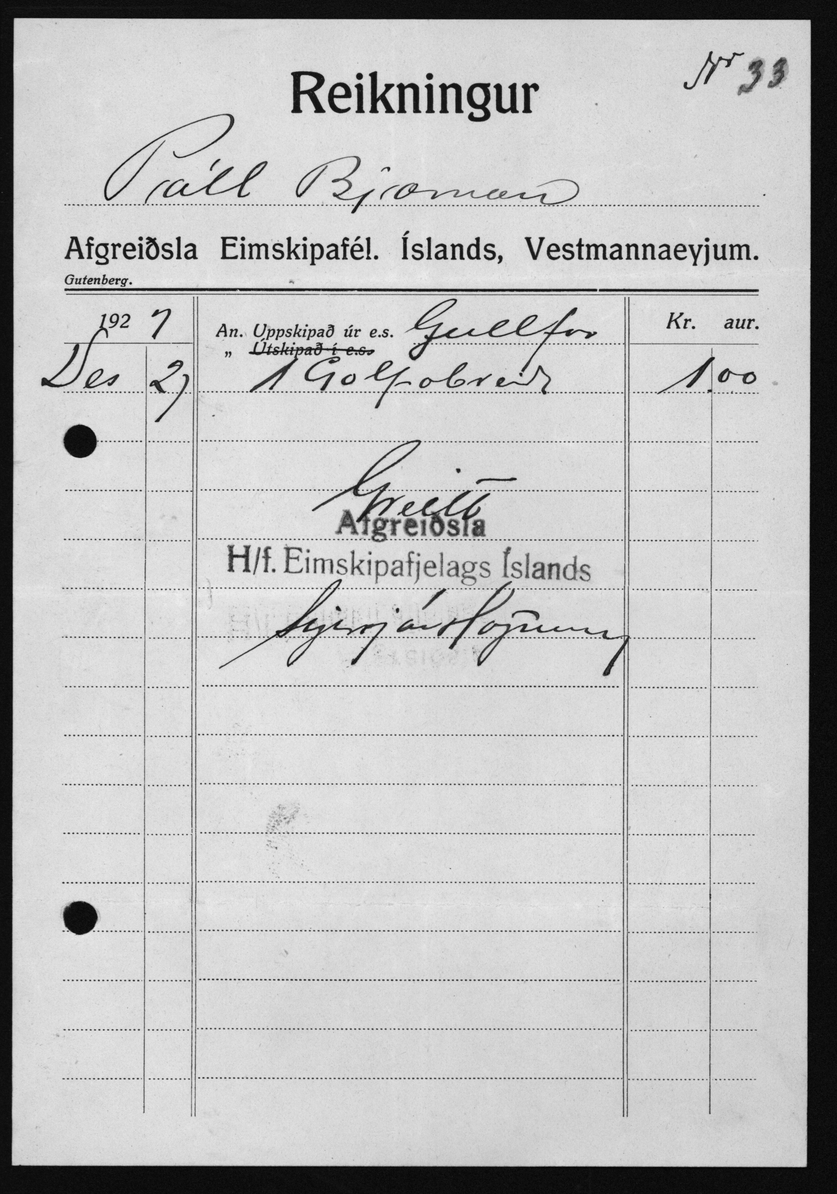 Nr 33
Reikningur
Páll Bjarnason
Afgreiðsla Eimskipafél. Íslands, Vestmannaeyjum.
Gutenberg.
1927 An. Uppskipað úr e.s. Gullfos Kr. aur.
„ Útskipað í e.s.
Des 27 1 Golfábreiða 1.00
Greitt
Afgreiðsla
H/f. Eimskipafjelags Íslands